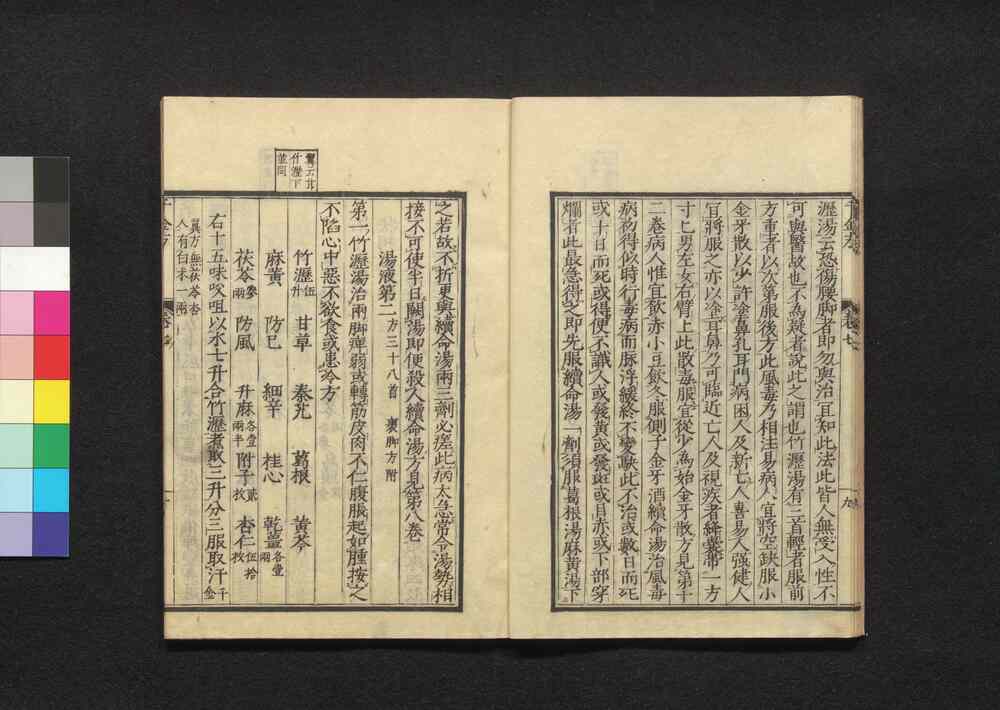 瀝湯云恐傷腰脚者即勿與治宜知此法此皆人無受入性不
可與醫故也不為疑者說此之謂也竹瀝湯有三首輕者服前
方重者以次第服後方此風毒乃相注易病人宜將空缺服小
金牙散以少許塗鼻孔耳門病困人及新亡人喜易人強健人
宜將服之亦以塗耳鼻乃可臨近亡人及視疾者絳囊帶一方
寸匕男左女右臂上此散毒服宜從少為始金牙散方見第十
二卷病人惟宜飲赤小豆飲冬服側子金牙酒續命湯治風毒
病初得似時行毒病而脉浮緩終不變駃此不治或數日而死
或十日而死或得便不識人或發黃或發斑或目赤或下部穿
爛者此最急得之即先服續命湯一劑須服葛根湯麻黃湯下
之若故不折更與續命湯兩三劑必瘥此病太急常令湯勢相
接不可使半日闕湯即便殺人續命湯方見第八卷
湯液第二 方三十八首 裹脚方附
第一竹瀝湯治兩脚痺弱或轉筋皮肉不仁腹脹起如腫按之
不陷心中惡不欲食或患冷方
竹瀝伍升 甘草 秦艽 葛根 黃芩
麻黃 防已 細辛 桂心 乾薑各壹兩
茯苓叄兩 防風 升麻各壹兩半 附子貳枚 杏仁伍拾枚
右十五味㕮咀以水七升合竹瀝煮取三升分三服取汗千金
翼方無茯苓杏
人有白朮一兩